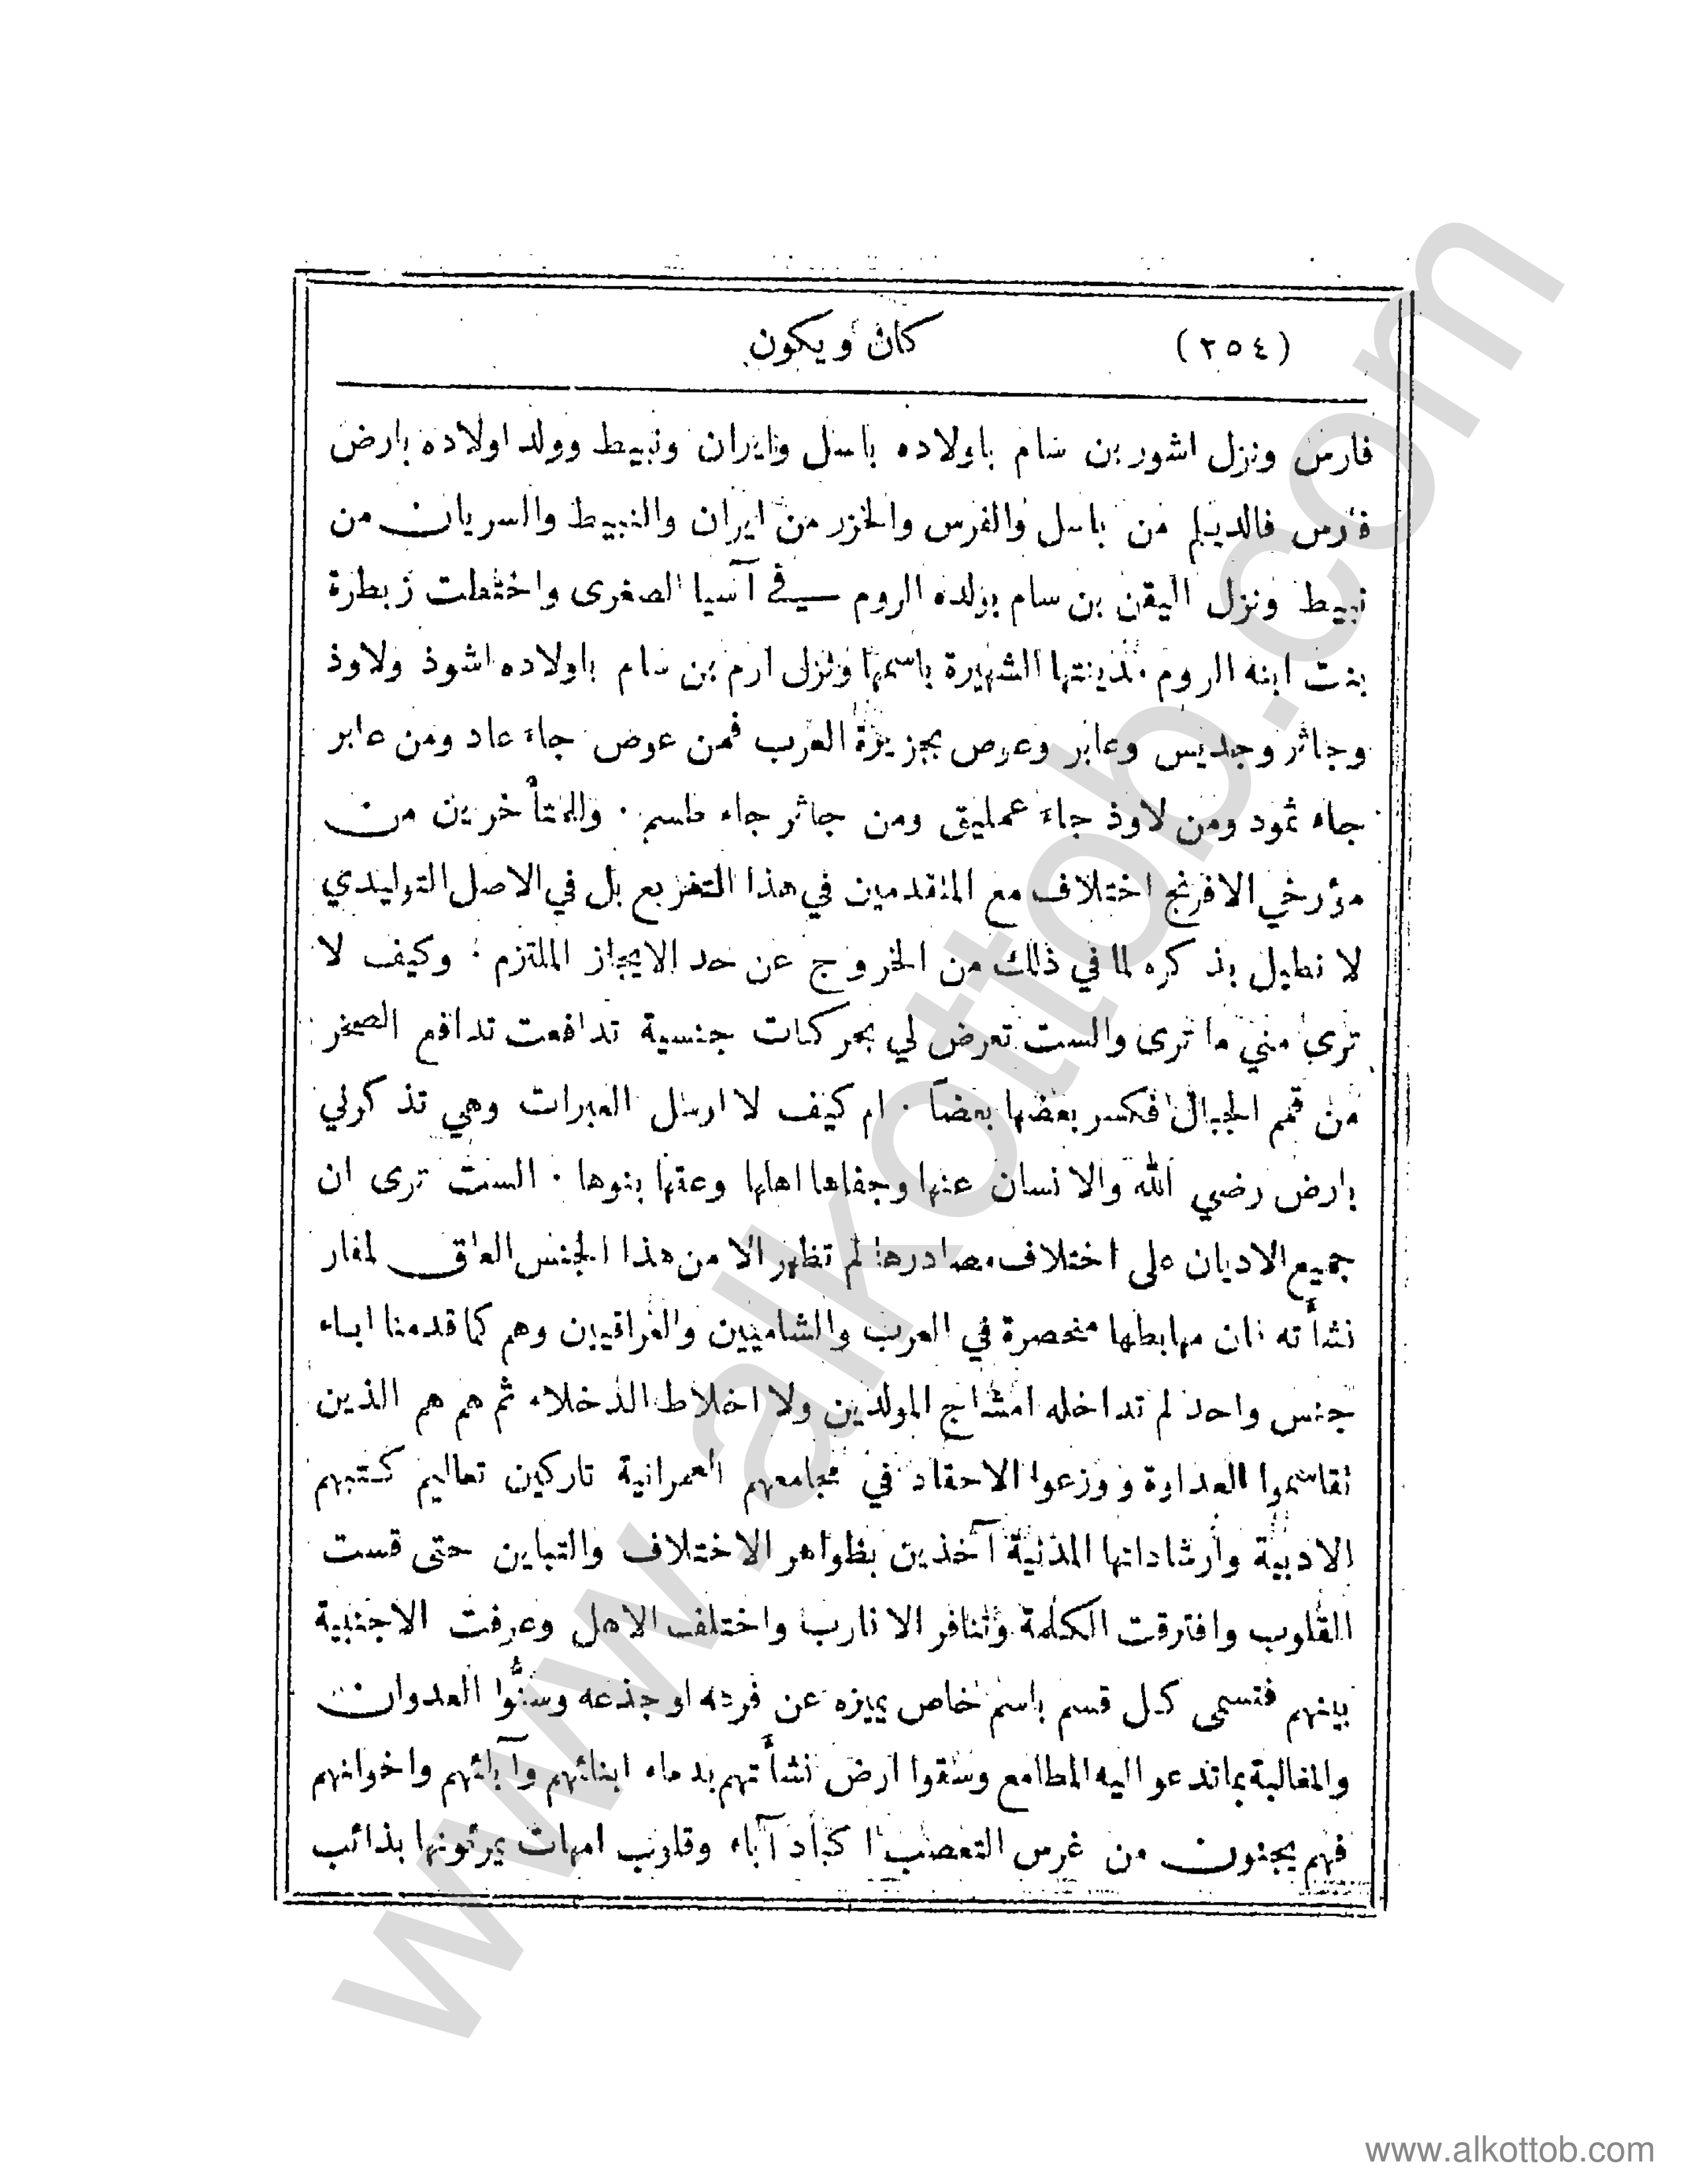 (٢٥٤) كان ويكون
فارس ونزل اشور بن سام باولاده باسل وايران ونبيط وولد اولاده بارض
فارس فالديلم من باسل والفرس والخزر من ايران والنبيط والسريان من
نبيط ونزل اليقن بن سام بولده الروم في آسيا الصغرى واختطت زبطرة
بنت ابنه الروم مدينتها الشهيرة باسمها ونزل ارم بن سام باولاده اشوذ ولاوذ
وجاثر وجديس وعابر وعوص بجزيرة العرب فمن عوض جاء عاد ومن عابر
جاء ثمود ومن لاوذ جاء عمليق ومن جاثر جاء طسم . وللمتأخرين من
مؤرخي الافرنج اختلاف مع المتقدمين في هذا التفريع بل في الاصل التوليدي
لا نطيل بذكره لما في ذلك من الخروج عن حد الايجاز الملتزم . وكيف لا
ترى مني ما ترى والست تعرض لي بحركات جنسية تدافعت تدافع الصخر
من قمم الجبال فكسر بعضها بعضاً . ام كيف لا ارسل العبرات وهي تذكرني
بارض رضي الله والانسان عنها وجفاها اهلها وعقها بنوها . الست ترى ان
جميع الاديان على اختلاف مصادرها لم تظهر الا من هذا الجنس العاق لمغار
نشأته فان مهابطها منحصرة في العرب والشاميين والعراقيين وهم كما قدمنا ابناء
جنس واحد لم تداخله امشاج المولدين ولا اخلاط الدخلاء ثم هم هم الذين
تقاسموا العداوة ووزعوا الاحقاد في مجامعهم العمرانية تاركين تعاليم كتبهم
الادبية وارشاداتها المدنية آخذين بظواهر الاختلاف والتباين حتى قست
القلوب وافترقت الكلمة وتنافر الاقارب واختلف الاهل وعرفت الاجنبية
بينهم فتسمى كل قسم باسم خاص يميزه عن فرده او جذعه وسنُّوا العدوان
والمغالبة بما تدعو اليه المطامع وسقوا ارض نشأتهم بدماء ابنائهم وآبائهم واخوانهم
فهم يجنون من غرس التعصب اكباد آباء وقلوب امهات يرثونها بذائب
www.alkottob.com
www.alkottob.com